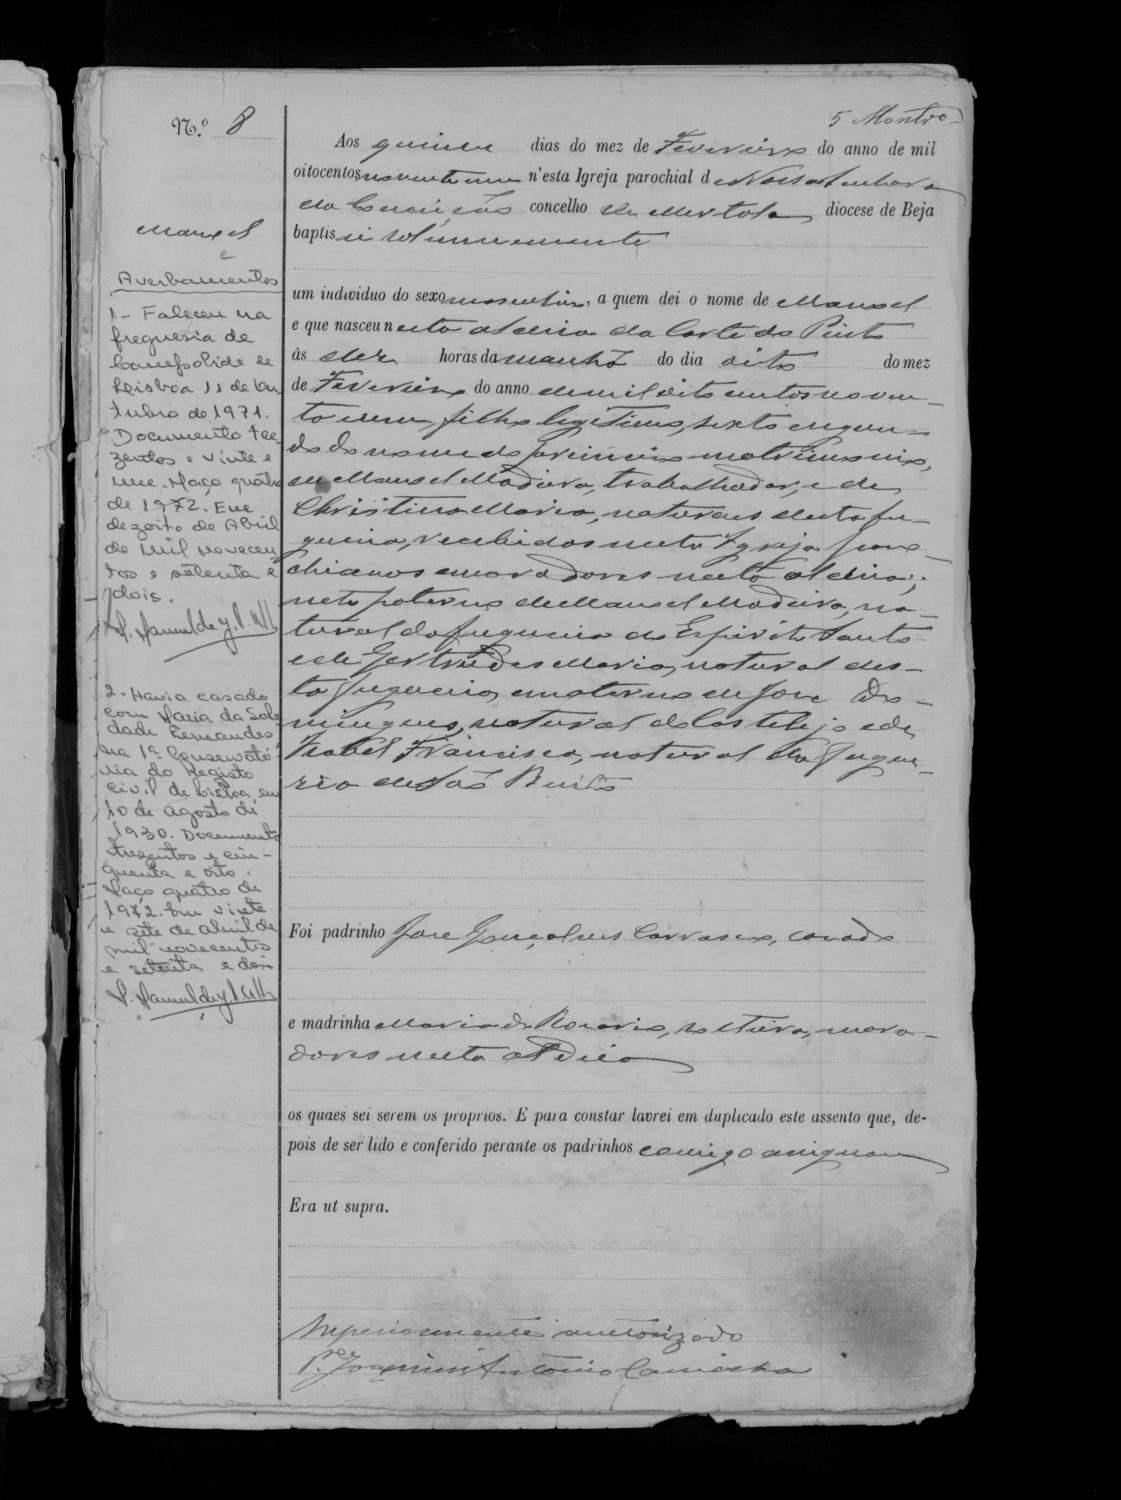 5 Montro
N.º 8
Manoel
e
Averbamentos
1 - Faleceu na
freguesia de
Campolide de
Lisboa 11 de Ou
tubro de 1971.
Documento tre
zentos e vinte e
um. Maço quatro
de 1972. Em
dezoito de Abril
de mil novecen
tos e setenta e
dois.
2. Havia casado
com Maria da Sole
dade Fernandes
na 1ª Conservató
ria do Registo
Civil de Lisboa, em
10 de Agosto de
1930. Documento
trezentos e cin-
quenta e oito.
Maço quatro de
1972. Em vinte
e sete de abril de
mil novecentos
e setenta e dois
Aos quinse dias do mez de Fevereiro do anno de mil
oitocentos noventa e um n'esta Igreja parochial de Nossa Senhora
da Conceição concelho de Mertola diocese de Beja
baptisei solemnemente
um individuo do sexo masculino, a quem dei o nome de Manoel
e que nasceu nesta aldeia da Corte do Pinto
ás dez horas da manhã do dia oito do mez
de Fevereiro do anno de mil oito centos noven-
ta e um, filho legitimo, sexto e segun-
do do nome do primeiro matrimonio,
de Manoel Madeira, trabalhador, e de
Christina Maria, naturaes desta fre-
guezia, recebidos nesta Igreja paro-
chianos e moradores nesta aldeia;
neto paterno de Manoel Madeira, na-
tural da freguezia do Espirito Santo
e de Gertrudes Maria, natural des-
ta freguezia, e materno de Jose Do-
mingues, natural do Castelejo e de
Izabel Francisca, natural da fregue-
zia de São Bento
Foi padrinho Jose Gonçalves Carrasco, casado
e madrinha Maria do Rosario, solteira, mora-
dores nesta aldeia
os quaes sei serem os proprios. E para constar lavrei em duplicado este assento que, de-
pois de ser lido e conferido perante os padrinhos comigo assignam
Era ut supra.
Superiormente auctorizado
P.e Joaquim Antonio Camacho